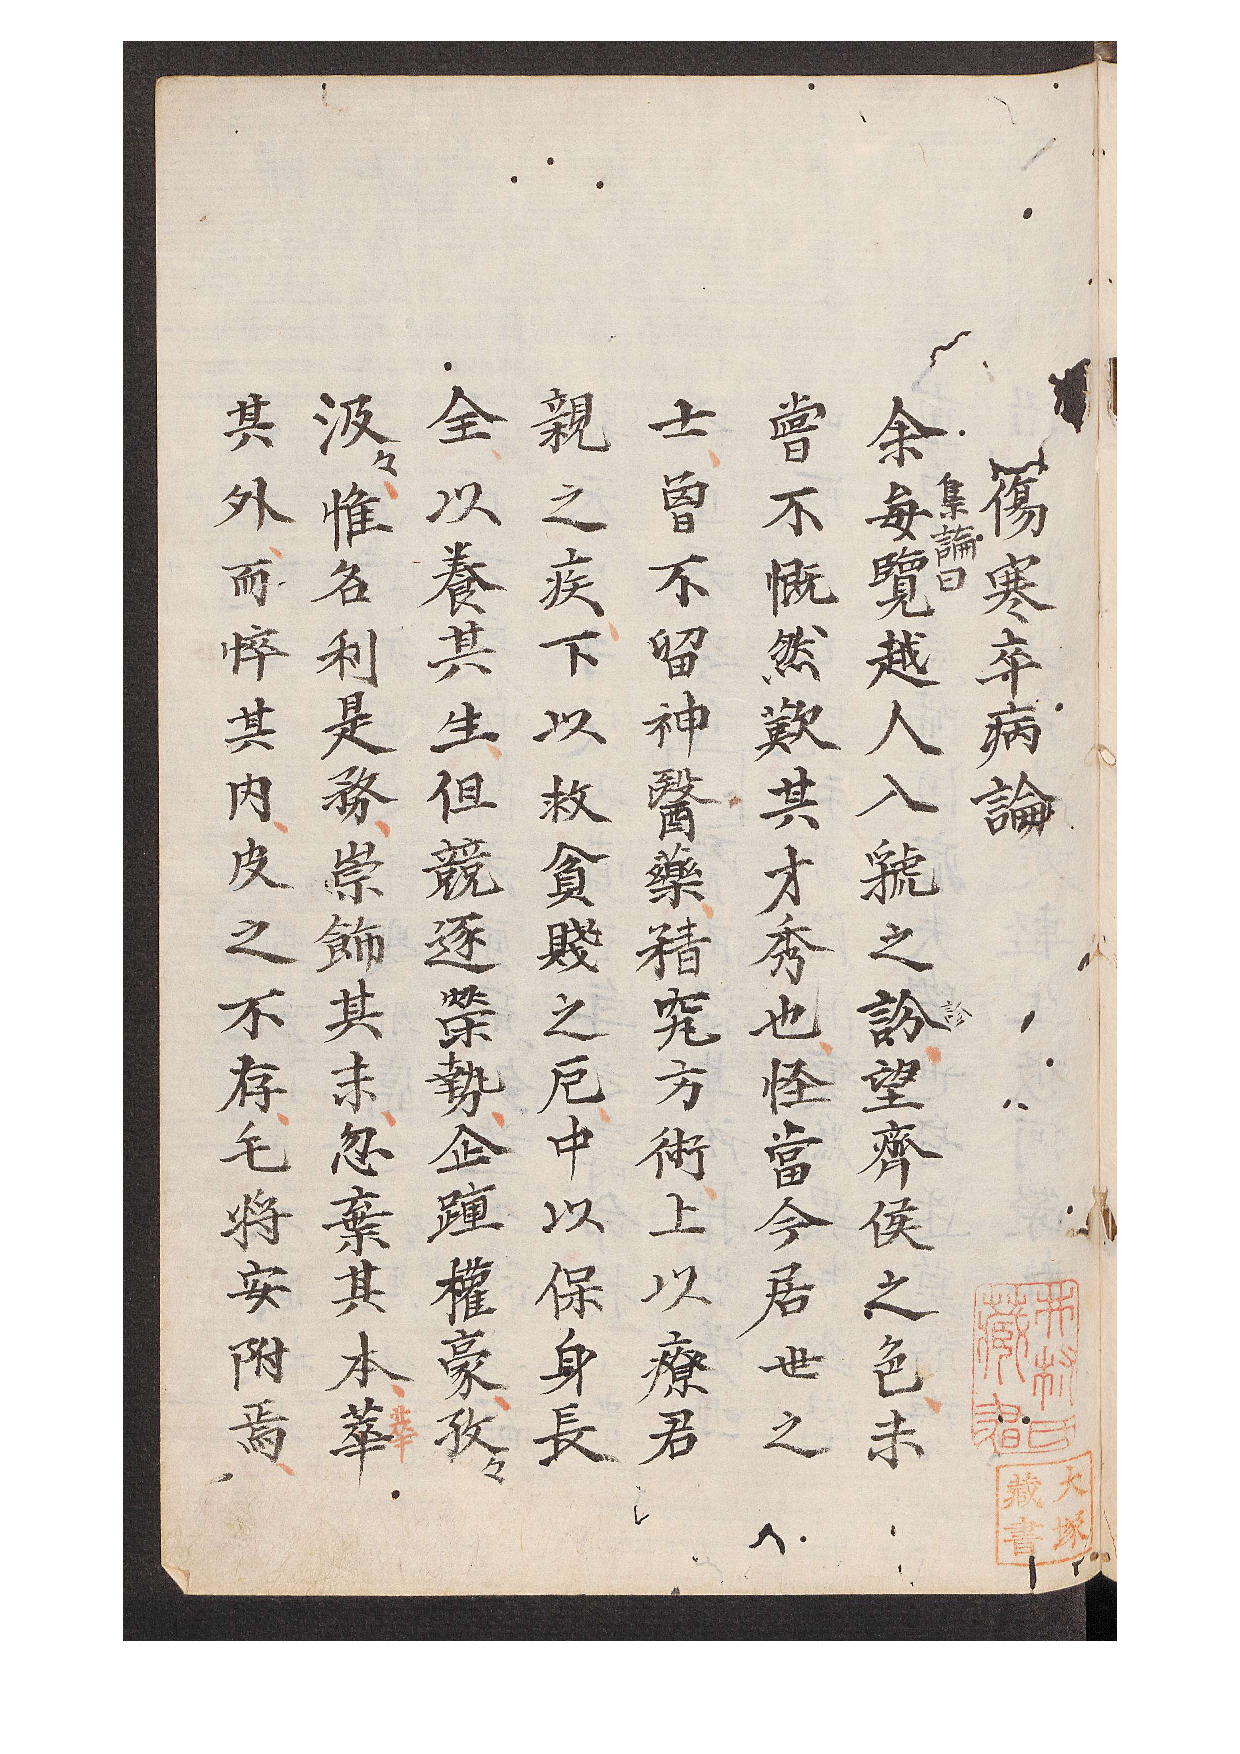 傷寒卒病論
集論曰
余每覽越人入虢之訜望齊侯之色未
診
嘗不慨然歎其才秀也怪當今居世之
士曾不留神醫藥精究方術上以療君
親之疾下以救貧賤之厄中以保身長
全以養其生但競逐榮勢企踵權豪孜々
汲々惟名利是務崇飾其末忽棄其本華
華
其外而悴其內皮之不存毛將安附焉
藏書
大塚
藏書